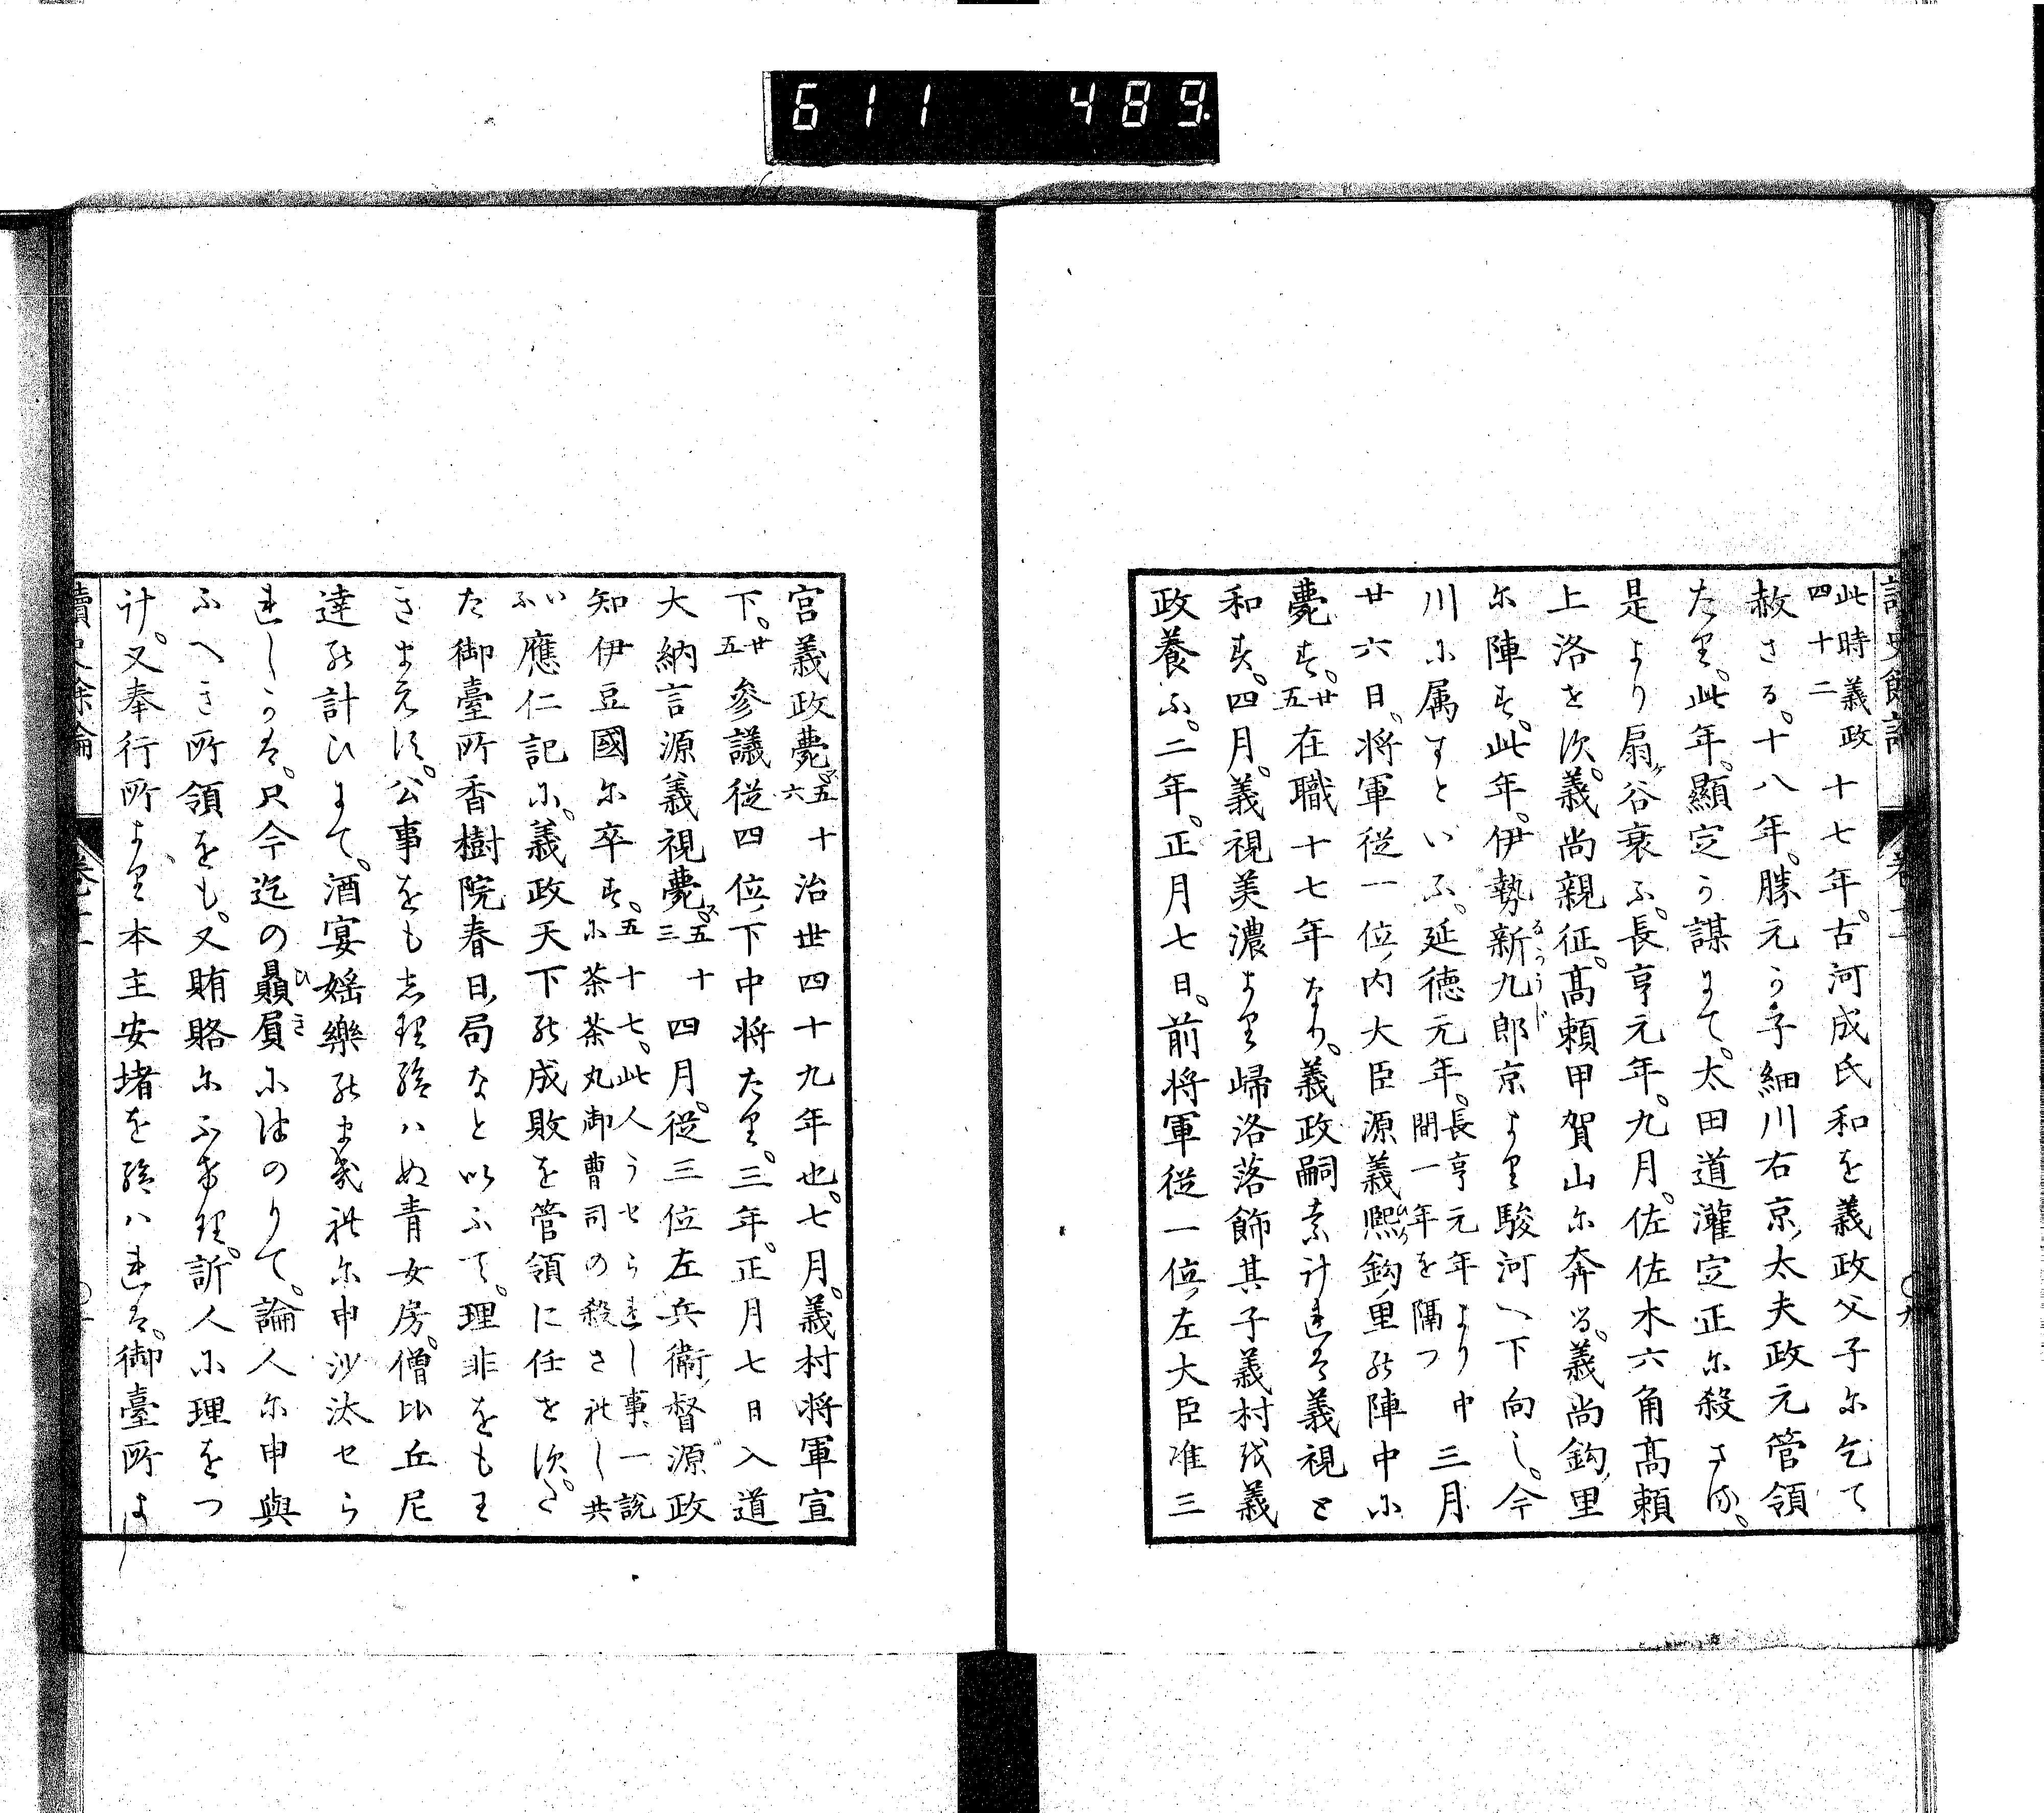 611 489
此時義政四十二十七年。古河成氏和を義政父子に乞て
赦さる。十八年。勝元か子細川右京太夫政元管領
たり。此年。顯定か謀にて。太田道灌定正に殺さる。
是より扇谷衰ふ。長亨元年。九月。佐佐木六角髙頼
上洛せす。義尚親征。髙頼甲賀山に奔る。義尚鈎里
に陣す。此年。伊勢新九郎京より駿河へ下向し。今
川に属すといふ。延徳元年。長亨元年より中間一年を隔つ三月
廿六日。将軍従一位内大臣源義熈鈎里の陣中に
薨す。廿五在職十七年なり。義政嗣素計れは義視と
和す。四月。義視美濃より帰洛落飾其子義村を義
政養ふ。二年。正月七日。前将軍従一位左大臣准三
宮義政薨。五十六治世四十九年也。七月。義村将軍宣
下。廿五参議従四位下中将たり。三年。正月七日入道
大納言源義視薨。五十三四月。従三位左兵衛督源政
知伊豆國に卒す。五十七。此人うせられし事一説に茶茶丸御曹司の殺されし共いふ
應仁記に。義政天下の成敗を管領に任せす。た
た御臺所香樹院春日局なと以ふて。理非をもわ
きまえす。公事をも志り給ハぬ青女房。僧比丘尼
達の計ひにて。酒宴婬樂のまきれに申沙汰せら
れしかは。只今迄の贔屓にほのりて。論人に申與
ふへき所領をも。又賄賂にふけり。訴人に理をつ
け。又奉行所より本主安堵を給ハれは。御臺所よ
讀史餘論 卷十一